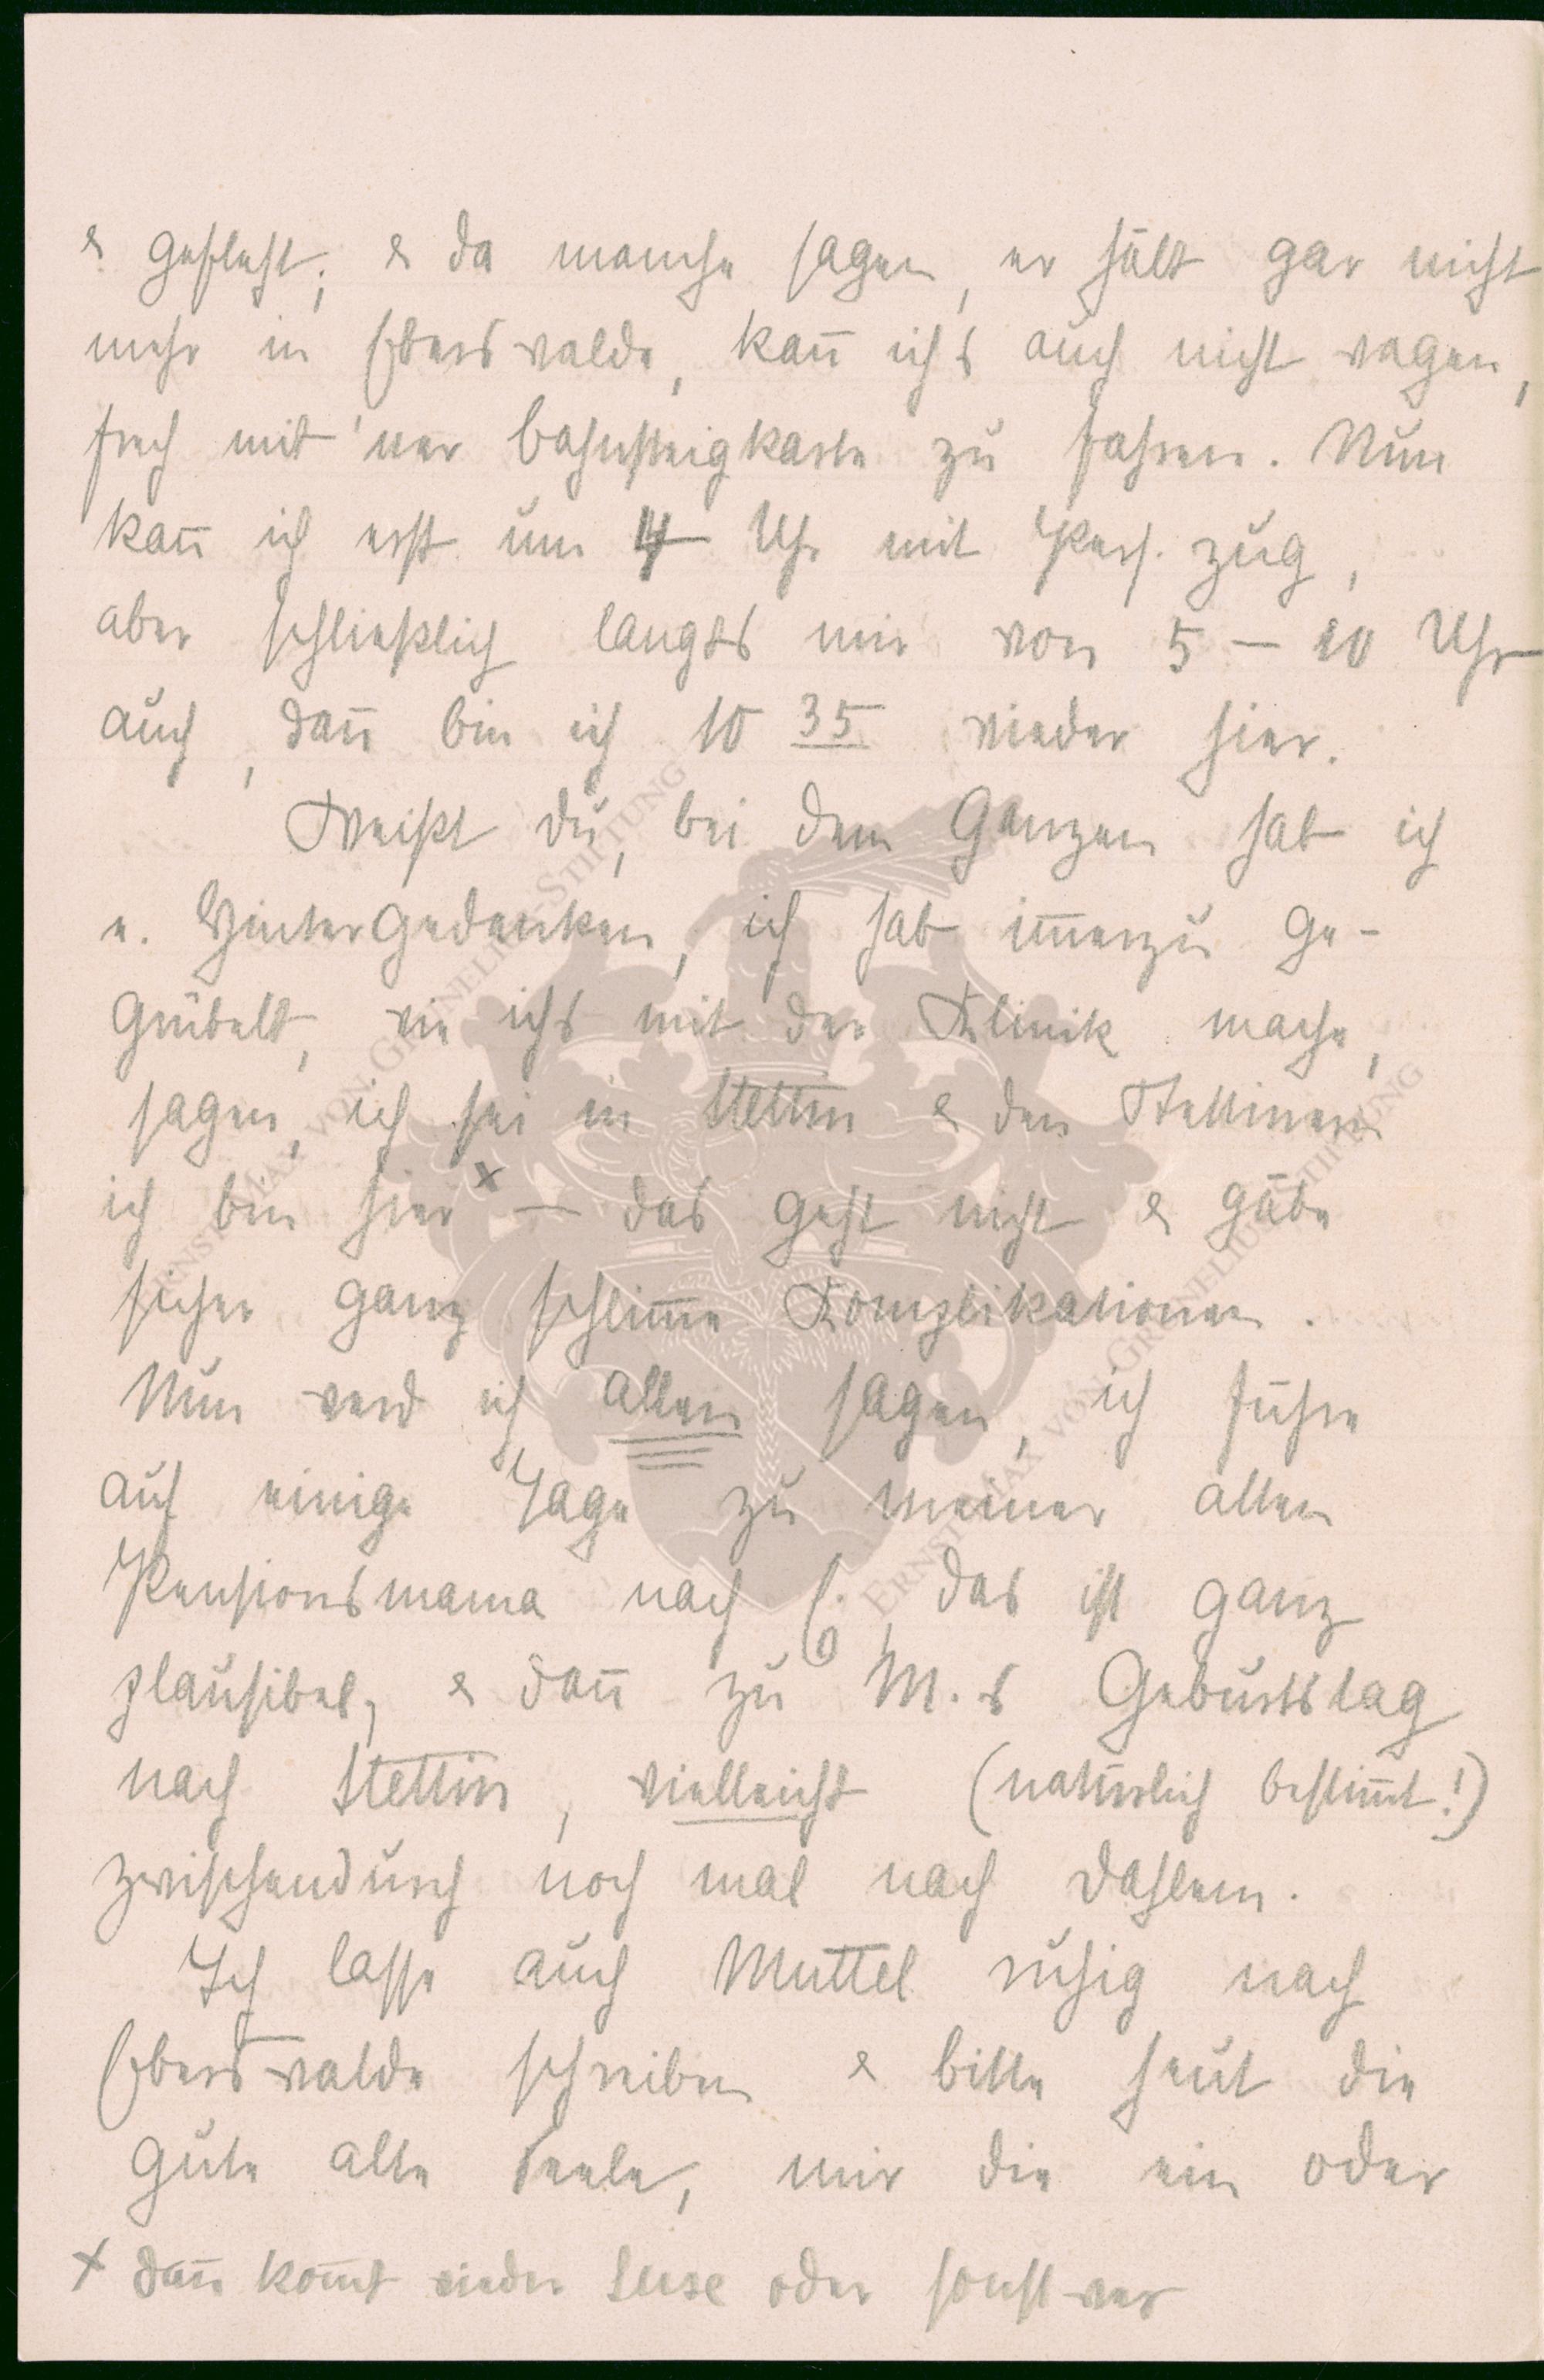 & gefleht; & da manche sagen, er hält gar nicht
mehr in Eberswalde, kann ichs auch nicht wagen,
frech mit 'ner Bahnsteigkarte zu fahren. Nun
kann ich erst um 4 Uhr mit Pers. zug,
aber schließlich langts mir von 5 – 10 Uhr
auch, dann bin ich 10 35 wieder hier.
Weißt du, bei dem Ganzen hab ich
e. Hintergedanken, ich hab immerzu ge-
grübelt, wie ichs mit der Klinik mache,
sagen, ich sei in Stettin & den Stettinern
ich bin hier x — das geht nicht & gäbe
sicher ganz schlimme Komplikationen.
Nun werd ich allen sagen, ich führe
auf einige Tage zu meiner alten
Pensionsmama nach E., das ist ganz
plausibel, & dann zu M.s Geburtstag
nach Stettin, vielleicht (natürlich bestimmt!)
zwischendurch noch mal nach Dahlem.
Ich lasse auch Muttel ruhig nach
Eberswalde schreiben & bitte heut die
gute alte Seele, mir die ein oder
x dann kommt wieder Suse oder sonst wer
ERNST MAX VON GRUNELIUS-STIFTUNG
ERNST MAX VON GRUNELIUS-STIFTUNG